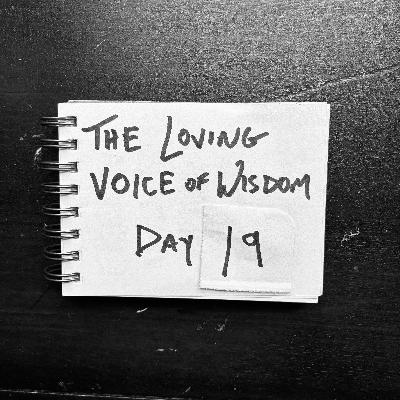 THE LOVING
VOICE OF WISDOM
DAY 19